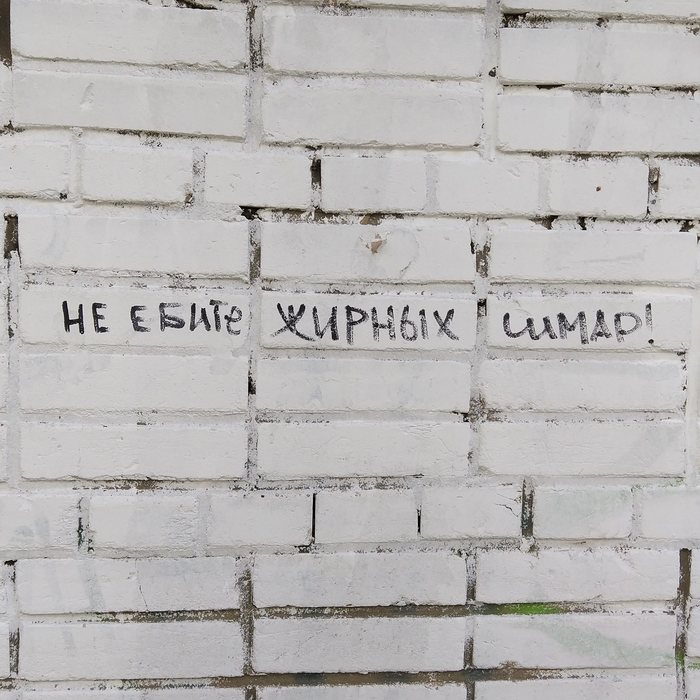 НЕ ЕБИТЕ ЖИРНЫХ ШМАР!